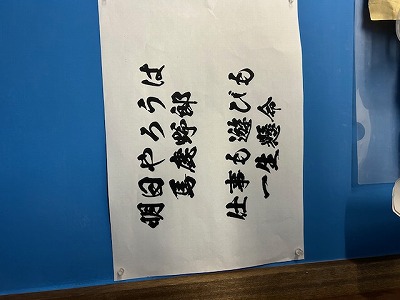 明日やろうは
馬鹿野郎
仕事も遊びも
一生懸命